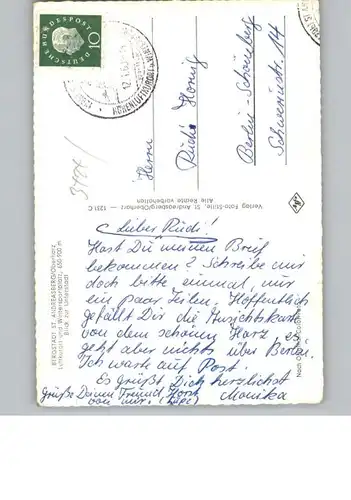 DEUTSCHE BUNDESPOST
10
HÖHENLUFTKURORT
Herrn
Rudi Honig
Berlin-Schöneberg
Schwerinstr. 14
3784/
Verlag Foto-Stille, St. Andreasberg/Oberharz — 1251 C
Alle Rechte vorbehalten
BERGSTADT ST. ANDREASBERG/Oberharz
Luftkurort und Wintersportplatz, 650-900 m
Blick zur Unterstadt
Lieber Rudi!
Hast Du meinen Brief
bekommen? Schreibe mir
doch bitte einmal, nur
ein paar Zeilen. Hoffentlich
gefällt Dir die Ansichtskarte
von dem schönen Harz, es
geht aber nichts über Berlin.
Ich warte auf Post.
Es grüßt Dich herzlichst
Monika
Grüße Deinen Freund Horst
von mir.